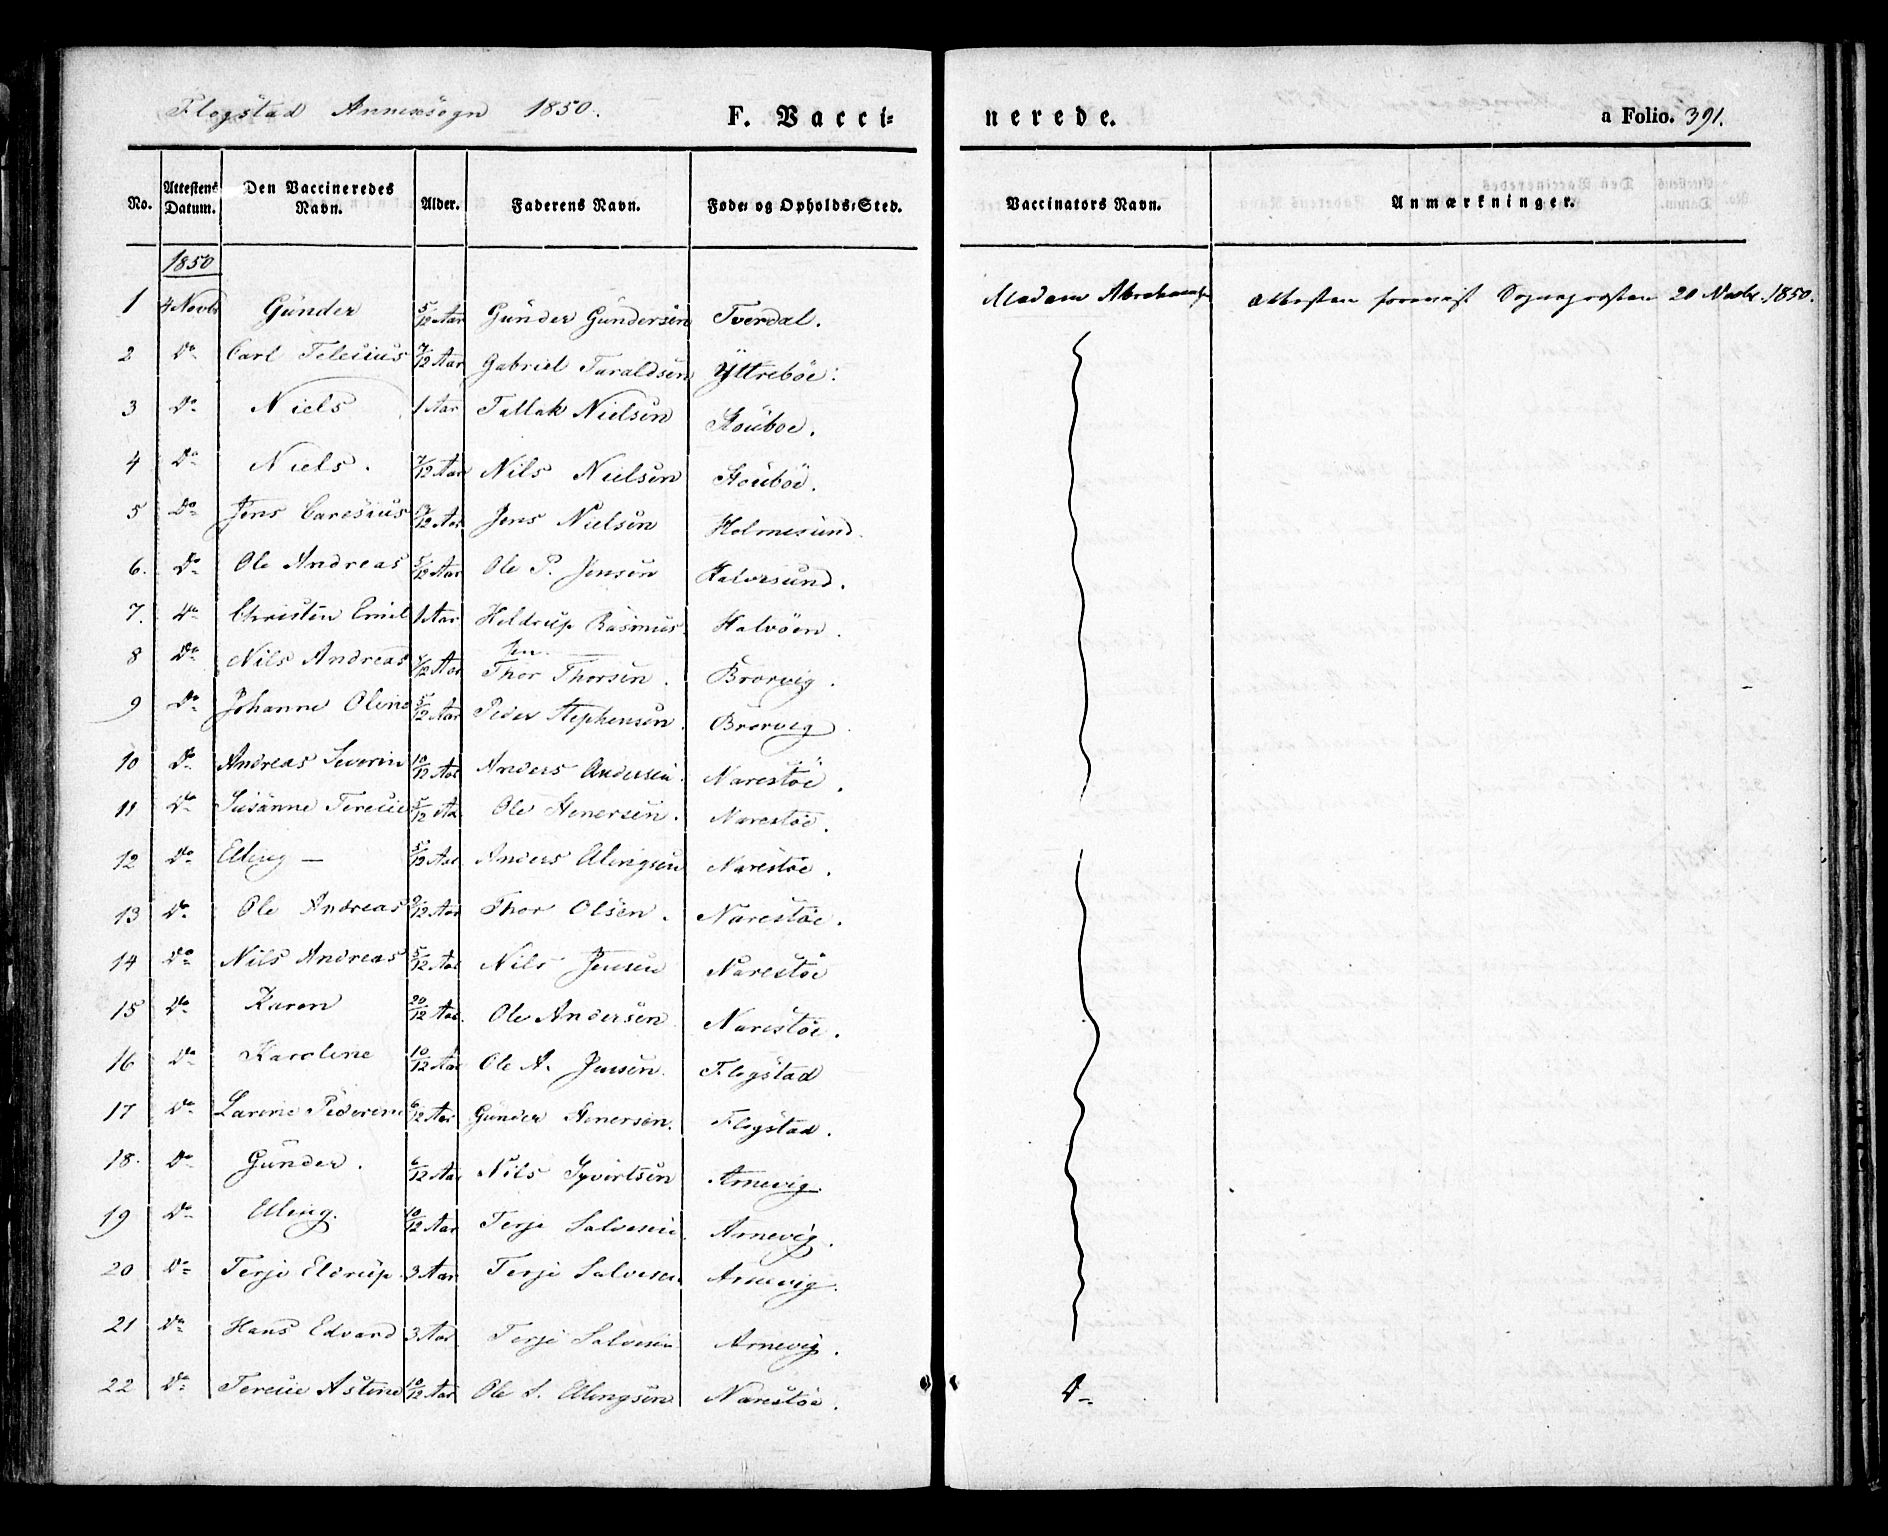 Flogstad Annexsogn 1850.
F. Vaccinerede.
a Folio. 391.
No. Attestens Datum. Den Vaccineredes Navn. Alder. Faderens Navn. Føde- og Opholds-Sted. Vaccinators Navn. Anmærkninger.
1850
1 4 Novbr Gunder 5/12 Aar Gunder Gundersen Tverdal. Madam Attesten forevist Sognepræsten 20 Novbr. 1850.
2 Do Carl Telesius 7/12 Aar Gabriel Taraldsen Yttreböe.
3 Do Niels 1 Aar Tallak Nielsen Stöuboe.
4 Do Niels. 7/12 Aar Nils Nielsen Stöuböe.
5 Do Jens Aar Jens Nielsen Holmesund.
6. Do Ole Andreas 5/12 Aar Ole P. Jensen Kalvesund.
7. Do Christen Emil 1 Aar Heldrup Rasmussen. Kalvöen.
8 Do Nils Andreas Aar Thor Thorsen. Brorvig.
9 Do Johanne Oline 5/12 Aar Peder Stephensen. Brorvig
10 Do Andreas Severin 10/12 Aar Anders Andersen. Narestöe.
11 Do Susanne Teresie 5/12 Aar Ole Narestöe.
12 Do Elling — 5/12 Aar Anders Ellingsen Narestöe.
13 Do Ole Andreas 9/12 Aar Thor Olsen. Narestöe.
14 Do Nils Andreas 5/12 Aar Nils Jensen Narestöe
15 Do Karen 20/12 Aar. Ole Andersen Narestöe.
16 Do Karoline 10/12 Aar Ole A. Jensen. Flogstad
17 Do Larine Pederine 6/12 Aar Gunder Flogstad.
18. Do Gunder. 6/12 Aar Nils Syvertsen Arnevig.
19 Do Elling. 10/12 Aar Terje Salvesen. Arnevig.
20 Do Terje Eldrup 3 Aar Terje Salvesen Arnevig.
21 Do Hans Edvard 3 Aar Terje Salvesen Arnevig.
22 Do Teresie Astine 10/12 Aar Ole S. Ellingsen Narestöe. Do